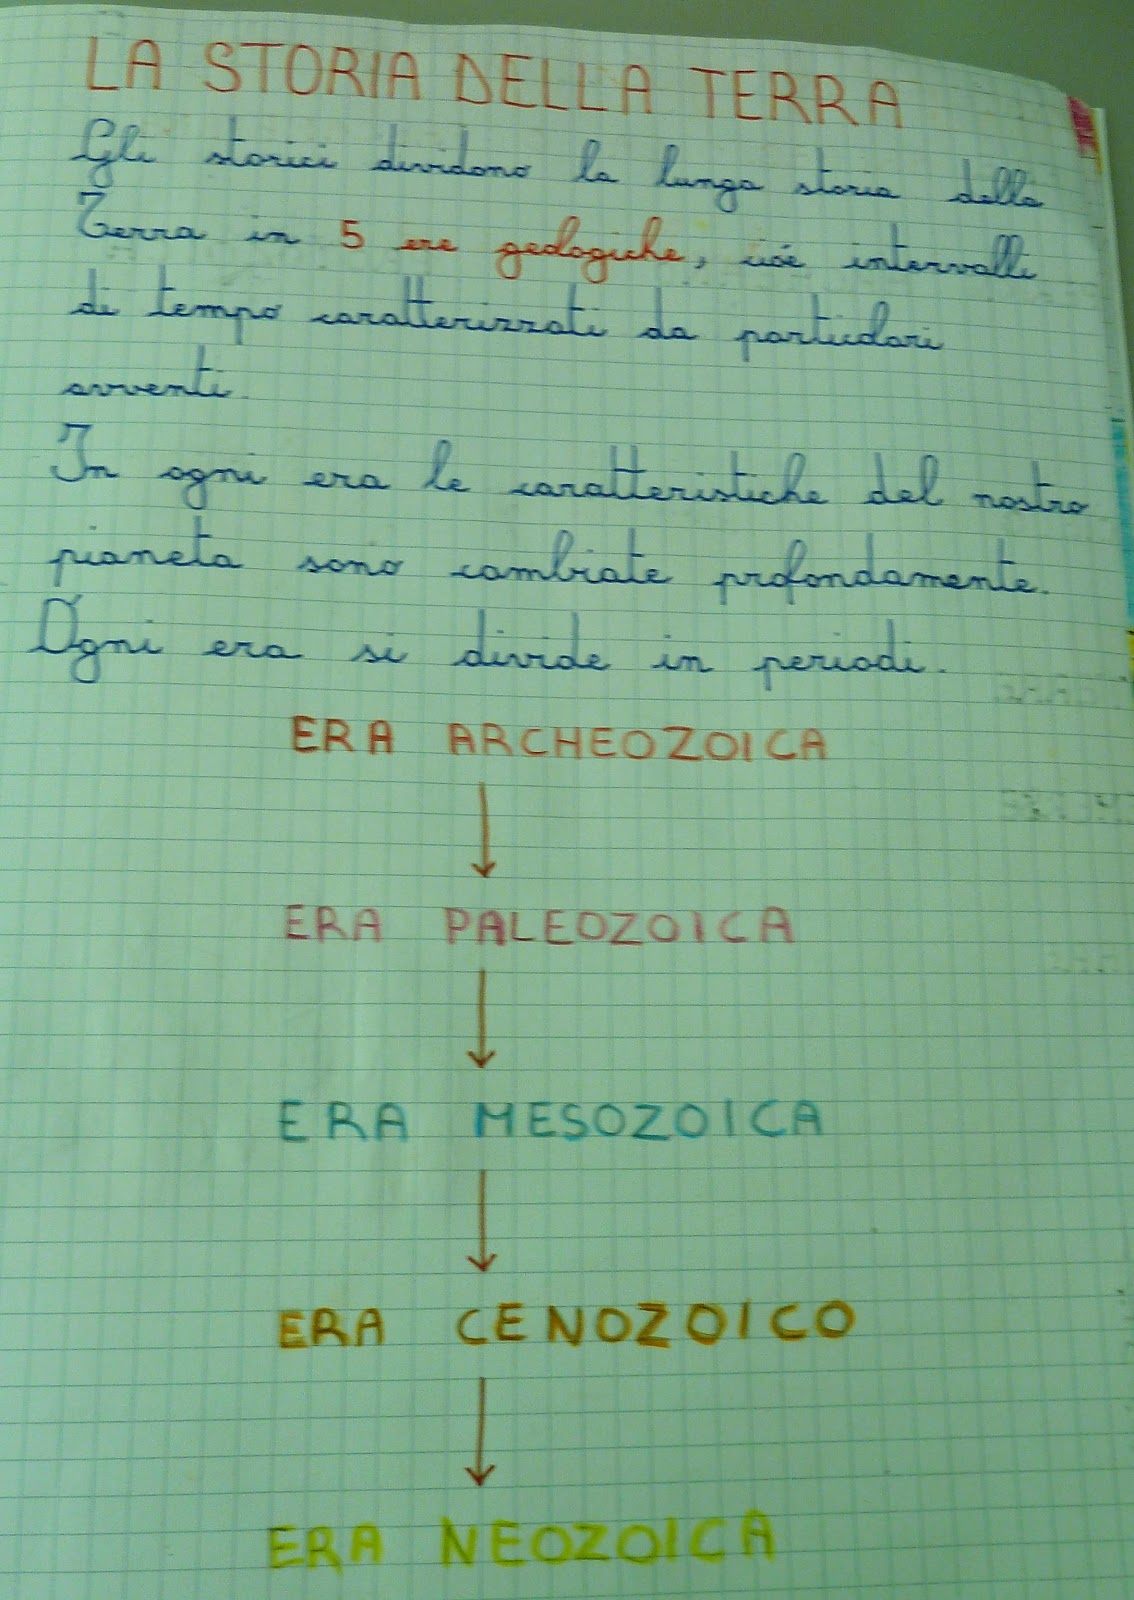 LA STORIA DELLA TERRA
Gli storici dividono la lunga storia della
Terra in 5 ere geologiche, cioé intervalli
di tempo caratterizzati da particolari
avventi.
In ogni era le caratteristiche del nostro
pianeta sono cambiate profondamente.
Ogni era si divide in periodi.
ERA ARCHEOZOICA
ERA PALEOZOICA
ERA MESOZOICA
ERA CENOZOICO
ERA NEOZOICA